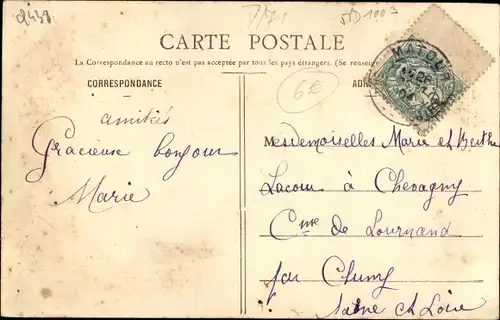 02438
CARTE POSTALE
La Correspondance au recto n'est pas acceptée par tous les pays étrangers. (Se renseigner
CORRESPONDANCE
ADR
MATOUR
6€
amitiés
Gracieuse bonjour
Marie
Mesdemoiselles Marie et Berthe
Lacour à Chevagny
Cne de Lournand
par Cluny
Saône et Loire